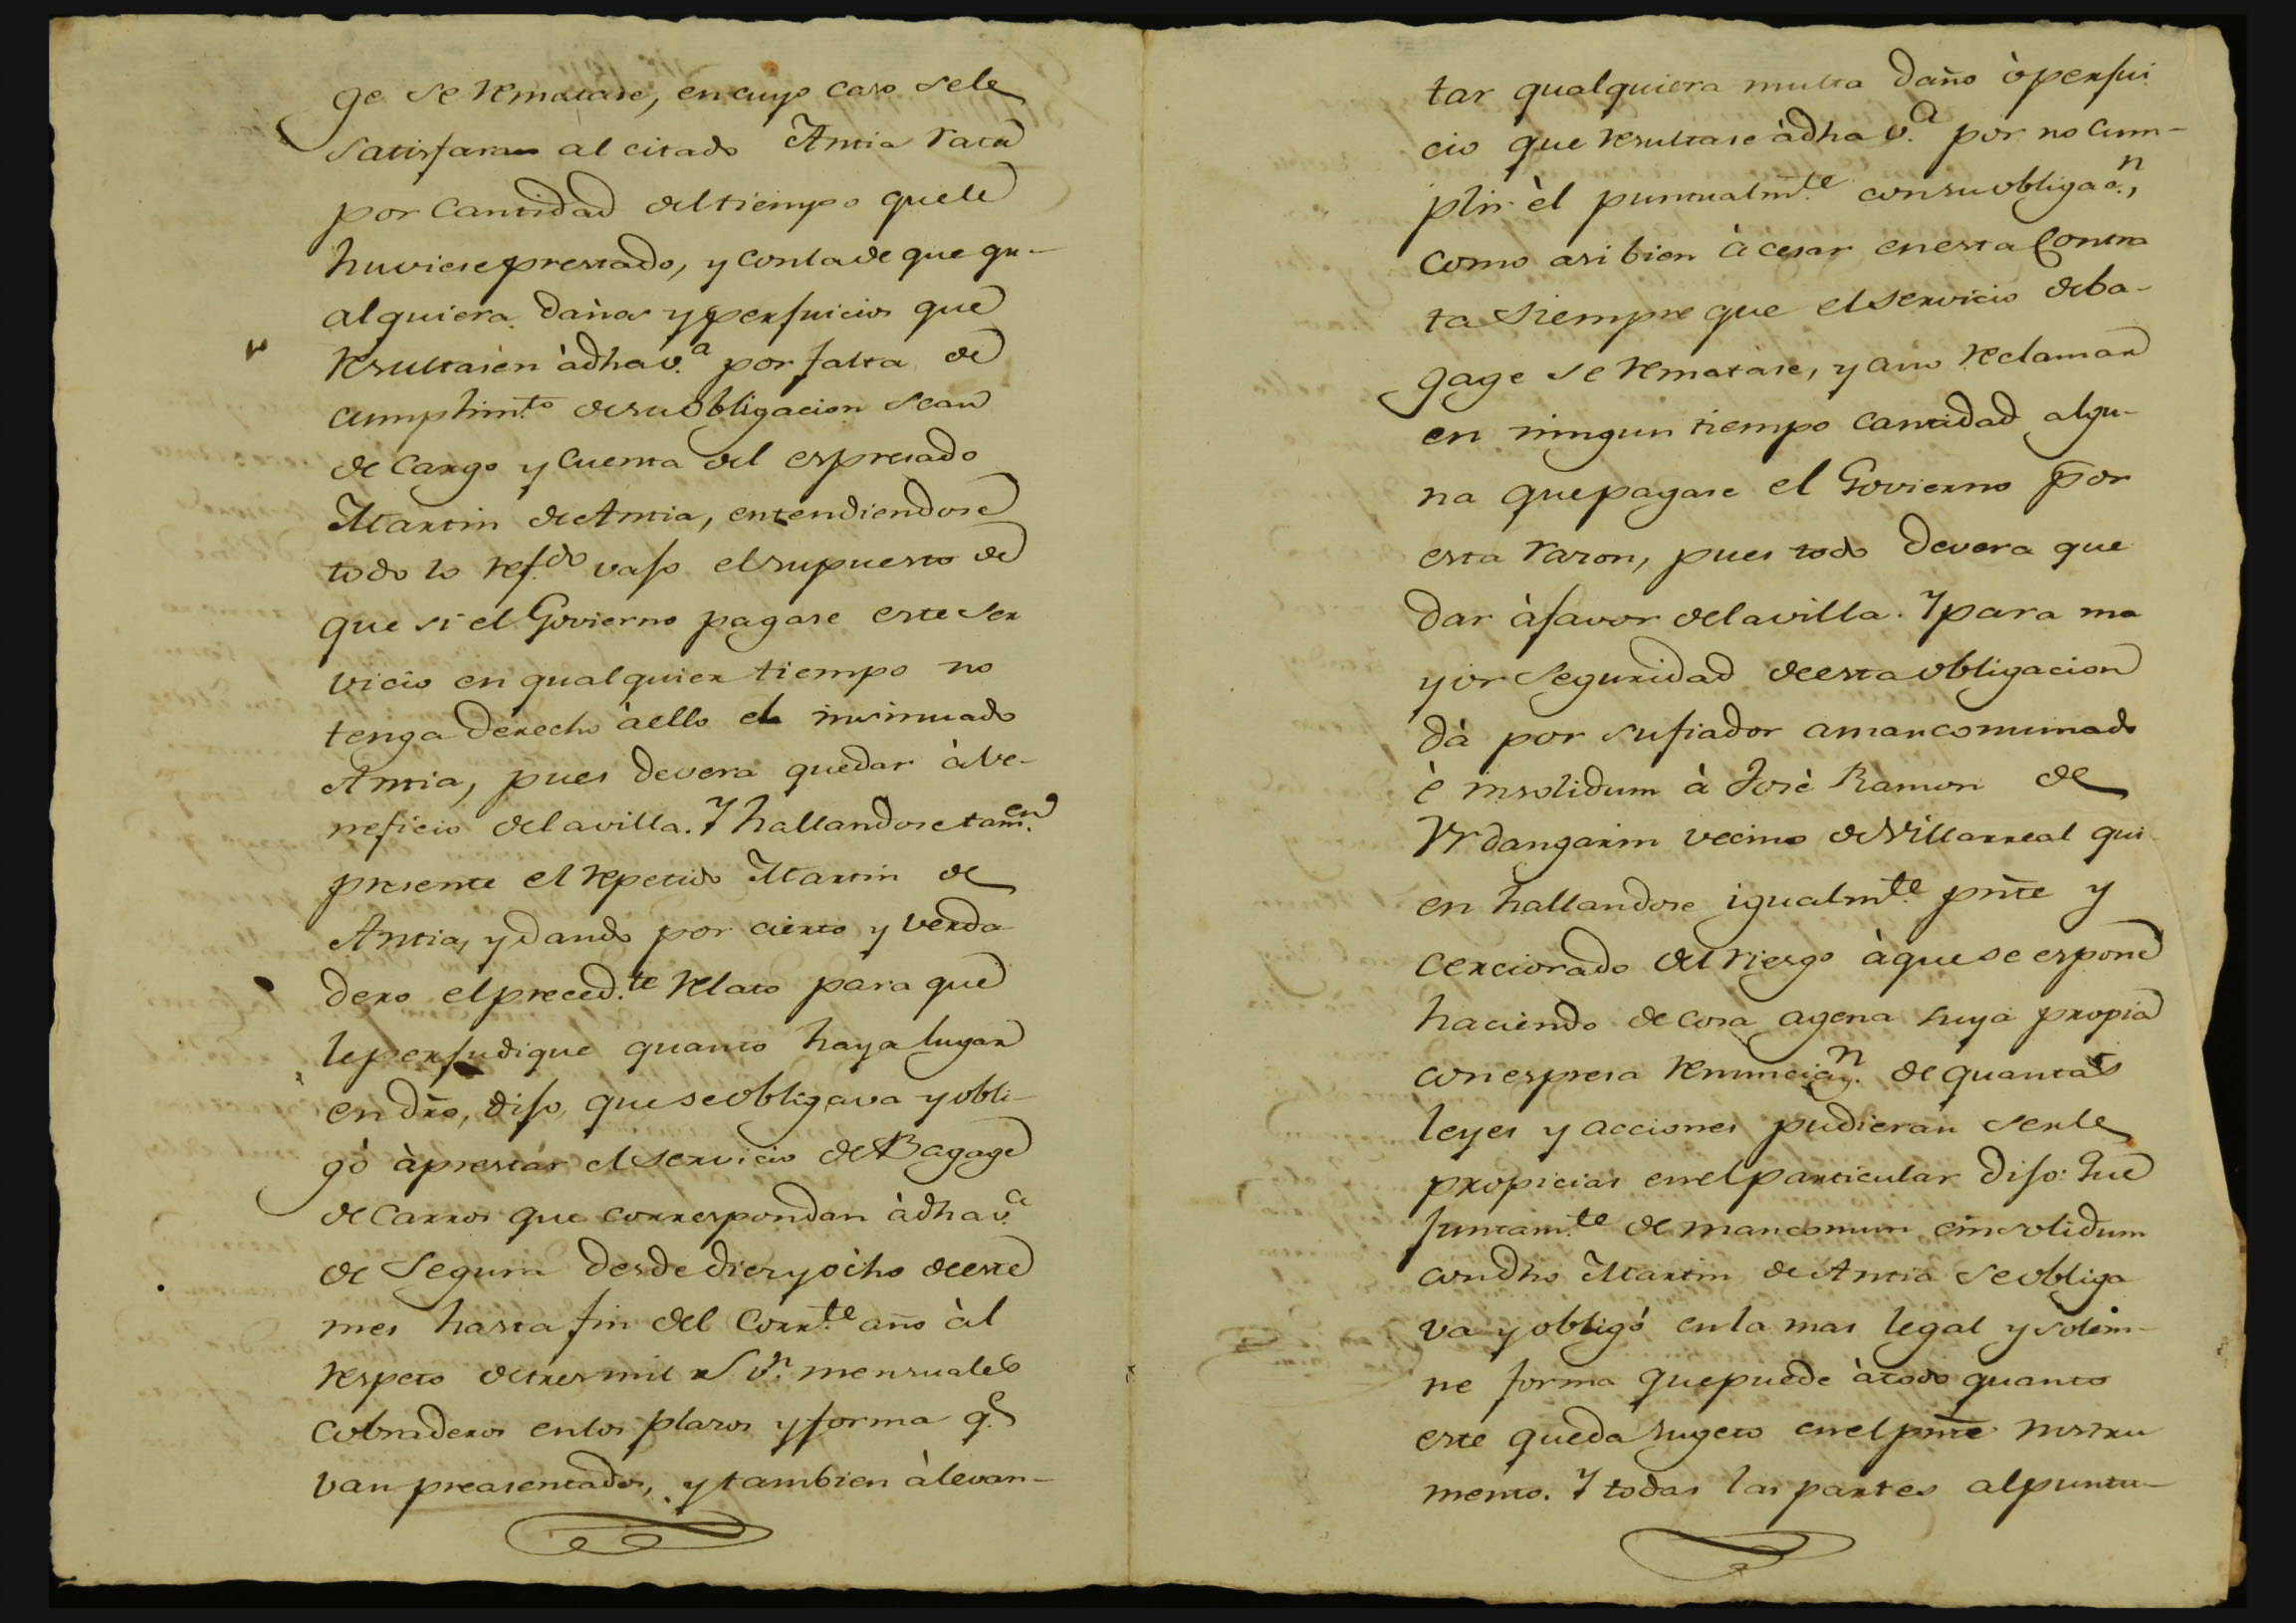 ge se rematare, en cuyo caso se le
satisfaran al citado Antia rata
por Cantidad del tiempo que le
huviese prestado, y con la de que qu-
alquiera daños y perjuicios que
resultasen à dha v.ª por falta de
cumplim.to de su obligacion sean
de Cargo y Cuenta del espresado
Martin de Antia, entendiendose
todo lo ref.do vajo el supuesto de
que si el Govierno pagase este ser
vicio en qualquier tiempo no
tenga derecho à ello el insinuado
Antia, pues devera quedar à be-
neficio de la villa. Y hallandose tam.en
presente el repetido Martin de
Antia, y dando por cierto y verda
dero el preced.te relato para que
le perjudique quanto haya lugar
en dro, dijo, que se obligava y obli-
gò à prestar el servicio de Bagage
de Carros que correspondan à dha v.ª
de Segura desde diez y ocho de este
mes hasta fin del Corr.te año àl
respeto de tres mil rs v.n mensuales
cobraderos en los plazos y forma q.e
van preasentados, y tambien à levan-
tar qualquiera multa daño ò perjui
cio que resultase à dha v.ª por no Cum-
plir èl puntualm.te con su obligac.n,
como asi bien à cesar en esta Contra
ta siempre que el servicio de ba-
gage se rematase, y a no reclamar
en ningun tiempo cantidad algu-
na que pagase el Govierno por
esta razon, pues todo devera que
dar à favor de la villa. Y para ma
yor seguridad de esta obligacion
dà por su fiador amancomunado
è insolidum à Josè Ramon de
Urdangarin vecino de Villarreal qui
en hallandose igualm.te pnte y
cerciorado del riesgo à que se espone
haciendo de cosa agena suya propia
con espresa renunciaz.n de quantas
leyes y acciones pudieran serle
propicias en el particular dijo: Que
juntam.te de mancomun è insolidum
con dho Martin de Antia se obliga
va y obligó en la mas legal y solem-
ne forma que puede à todo quanto
este queda sugeto en el pnte instru
mento. Y todas las partes al puntu-